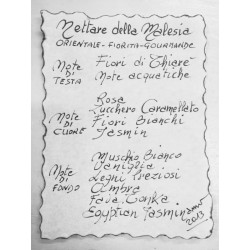 Nettare della Malesia
ORIENTALE-FIORITA-GOURMANDE
NOTE DI TESTA
Fiori di Thiarè
Note acquatiche
NOTE DI CUORE
Rosa
Zucchero Caramellato
Fiori Bianchi
Jasmin
NOTE DI FONDO
Muschio Bianco
Vaniglia
Legni Preziosi
Ambra
Fava Tonka
Egyptian Jasmin
2013